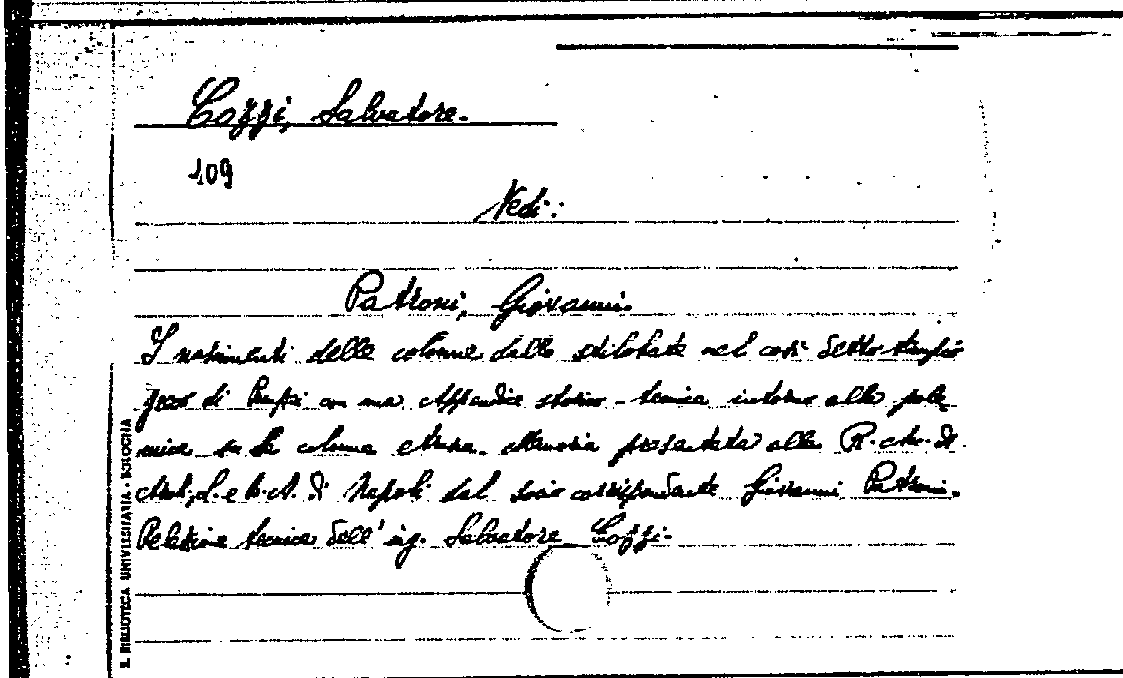 Cozzi, Salvatore.
109
Vedi:
Patroni, Giovanni.
I nascimenti delle colonne dallo stilobate nel così detto tempio
greco di Pompei con una Appendice storico-tecnica intorno alla pole
mica su la colonna etrusca. Memoria presentata alla R. Ac. di
Arch. L. e B. A. di Napoli dal socio corrispondente Giovanni Patroni.
Relazione tecnica dell'ing. Salvatore Cozzi.
R. BIBLIOTECA UNIVERSITARIA - BOLOGNA